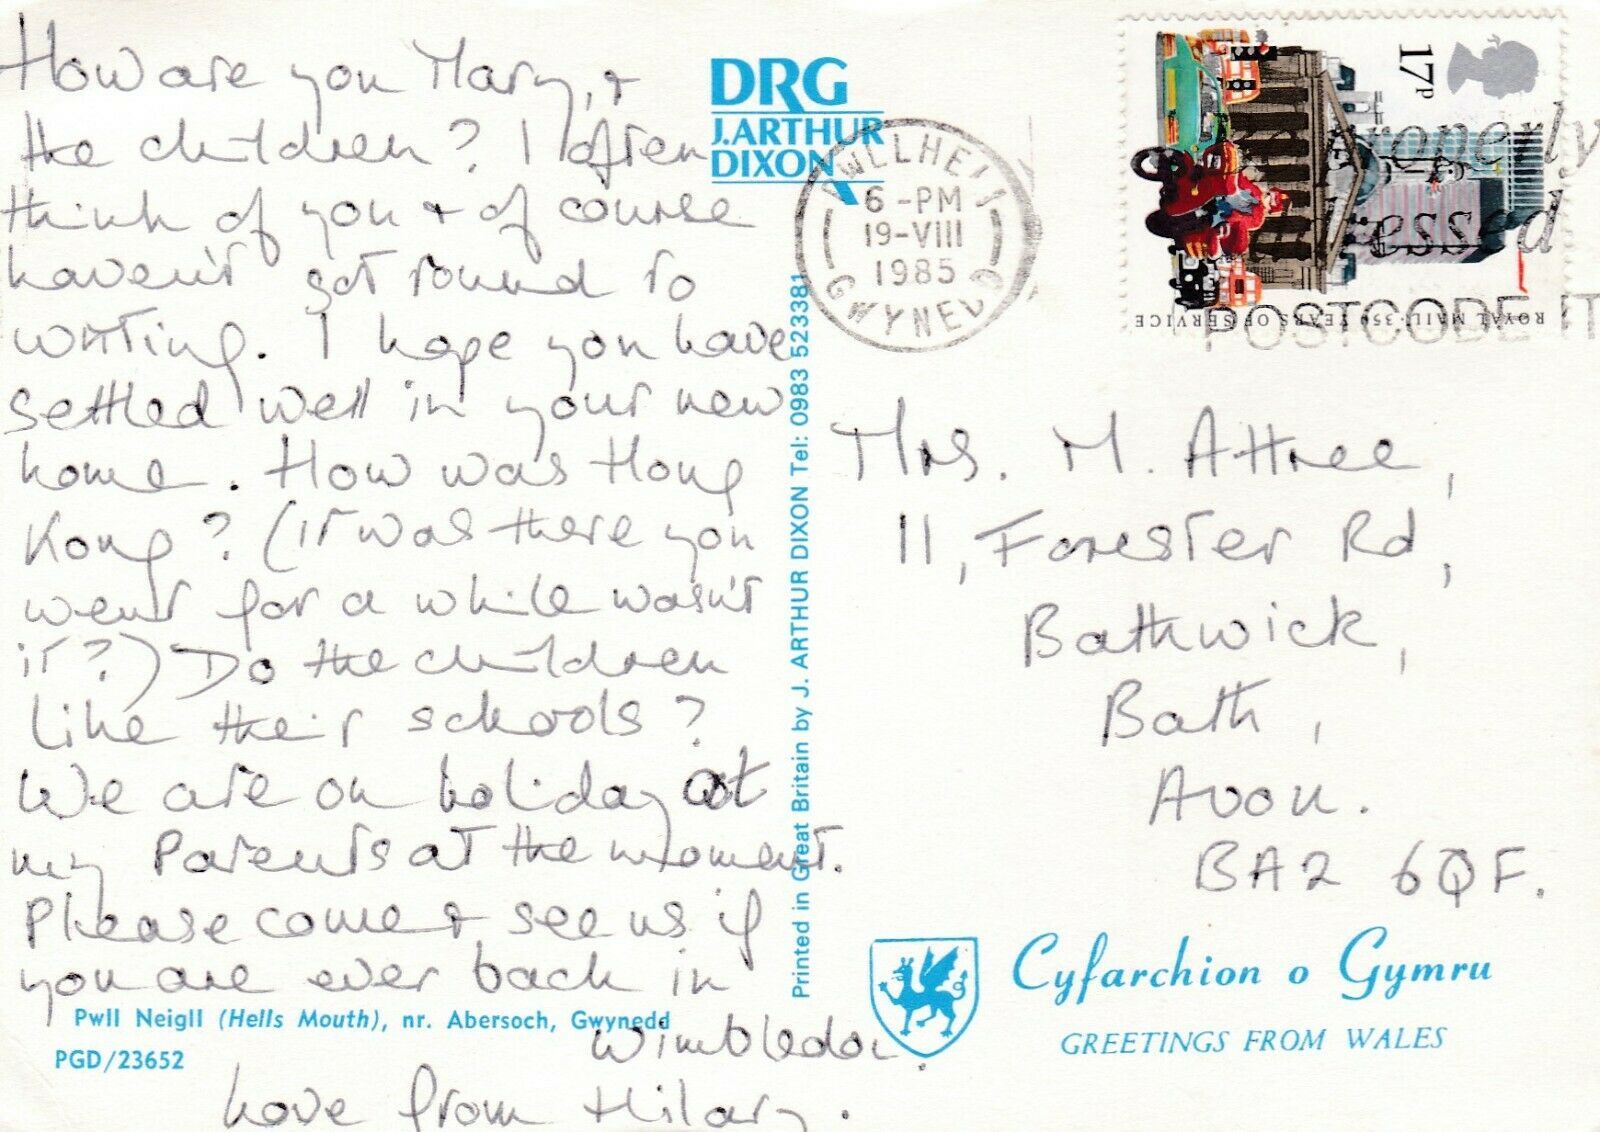 How are you Mary, +
the children? I often
think of you + of course
haven't got round to
writing. I hope you have
settled well in your new
home. How was Hong
Kong? (it was there you
went for a while wasn't
it?) Do the children
like their schools?
We are on holiday at
my Parents at the moment.
Please come + see us if
you are ever back in
Wimbledon.
Love from Hilary.
Pwll Neigll (Hells Mouth), nr. Abersoch, Gwynedd
PGD/23652
DRG
J.ARTHUR
DIXON
Printed in Great Britain by J. ARTHUR DIXON Tel: 0983 523381
PWLLHELI
6-PM
19-VIII
1985
GWYNEDD
17P
ROYAL MAIL·350 YEARS OF SERVICE
Properly
ressed
POSTCODE IT
Mrs. M. Attree,
11, Forester Rd,
Bathwick,
Bath,
Avon.
BA2 6QF.
Cyfarchion o Gymru
GREETINGS FROM WALES